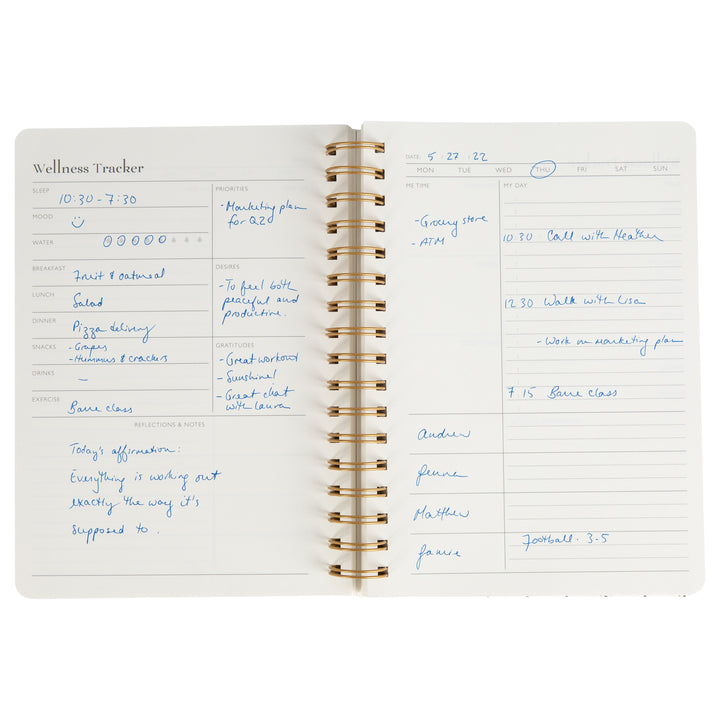 Wellness Tracker
SLEEP
10:30 - 7:30
MOOD
WATER
BREAKFAST
Fruit & oatmeal
LUNCH
Salad
DINNER
Pizza delivery
SNACKS
- Grapes
- Hummus & crackers
DRINKS
—
EXERCISE
Barre class
PRIORITIES
- Marketing plan
for Q2
DESIRES
- To feel both
peaceful and
productive.
GRATITUDES
- Great workout
- Sunshine!
- Great chat
with Laura
REFLECTIONS & NOTES
Today's affirmation:
Everything is working out
exactly the way it's
supposed to.
DATE: 5 · 27 · 22
MON TUE WED THU FRI SAT SUN
ME TIME
- Grocery store
- ATM
MY DAY
10 30 Call with Heather
12 30 Walk with Lisa
- Work on marketing plan
7 15 Barre class
Andrew
Jenna
Matthew
Jamie
Football · 3-5